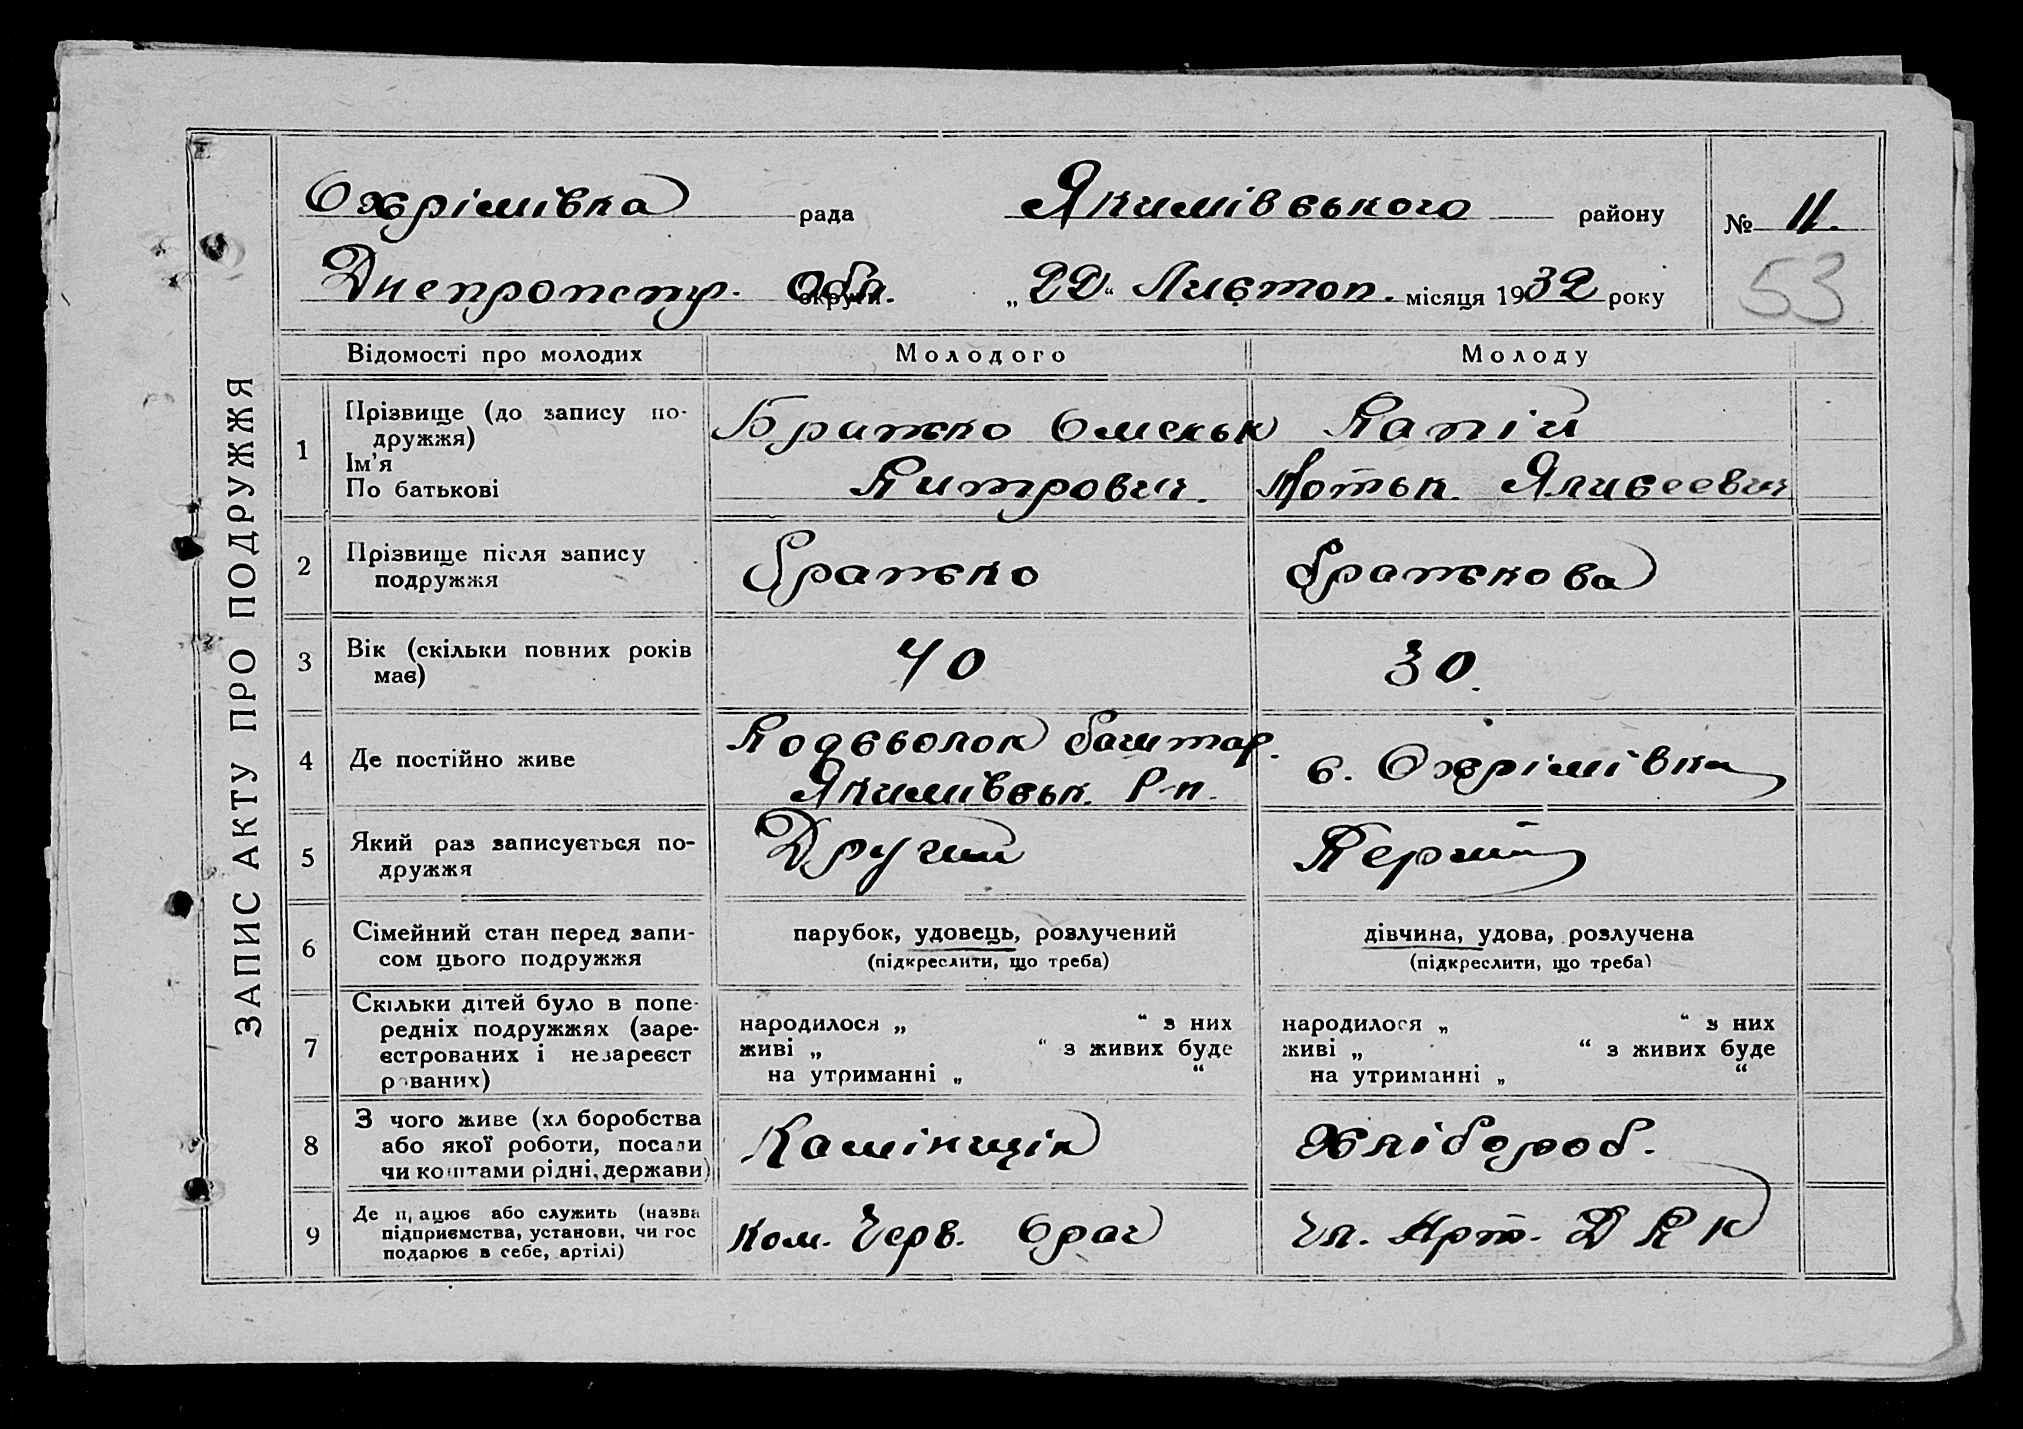 ЗАПИС АКТУ ПРО ПОДРУЖЖЯ
Охрімівка рада Якимівського району № 11.
Днепропетр. Обл. округи „22“ Листоп. місяця 1932 року 53
Відомості про молодих Молодого Молоду
1 Прізвище (до запису подружжя) Брижко Омельк Капій
Ім’я
По батькові Питрович. Мотьк. Яливеевич
2 Прізвище після запису Бражко Бражкова
подружжя
3 Вік (скільки повних років 40 30.
має)
4 Де постійно живе с. Охрімівка
Якимівськ. Р-н.
5 Який раз записується по- Другий Перший
дружжя
6 Сімейний стан перед запи- парубок, удовець, розлучений дівчина, удова, розлучена
сом цього подружжя (підкреслити, що треба) (підкреслити, що треба)
7 Скільки дітей було в попе-
редніх подружжях (заре- народилося „ “ з них народилося „ “ з них
єстрованих і незареєст живі „ “ з живих буде живі „ “ з живих буде
рованих) на утриманні „ “ на утриманні „ “
8 З чого живе (хл боробства
або якої роботи, посади Камінщік Хлібороб.
чи коштами рідні, держави)
9 Де працює або служить (назва
підприємства, установи, чи гос Ком. Черв. Чл. Арт. Д П К
подарює в себе, артілі)